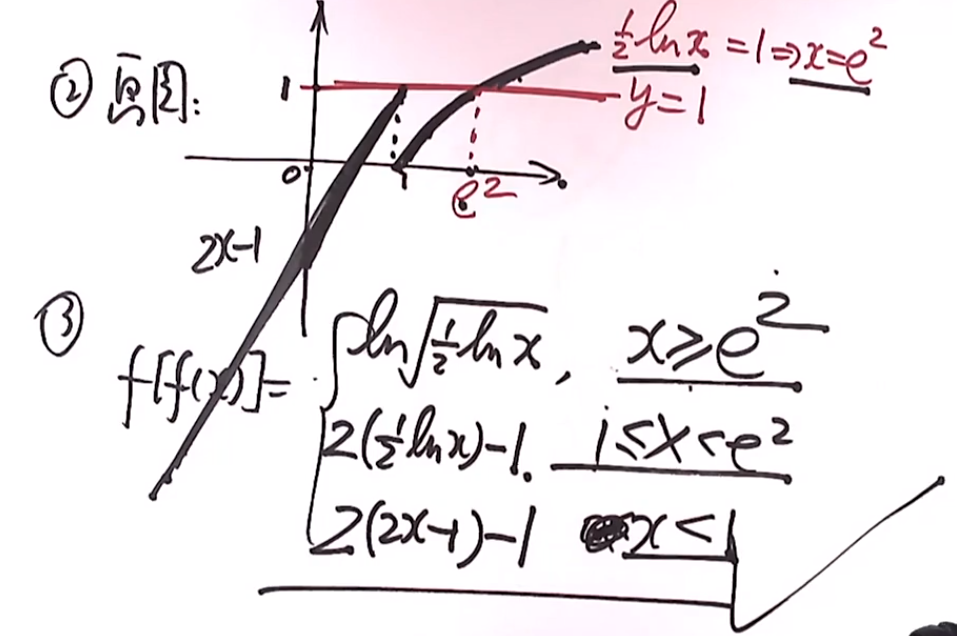 ½lnx = 1 ⇒ x = e²
② 画图:
1
y = 1
0
1
e²
2x-1
③
f[f(x)] =
ln√(½lnx), x ≥ e²
2(½lnx)-1. 1 ≤ x < e²
2(2x-1)-1 x < 1